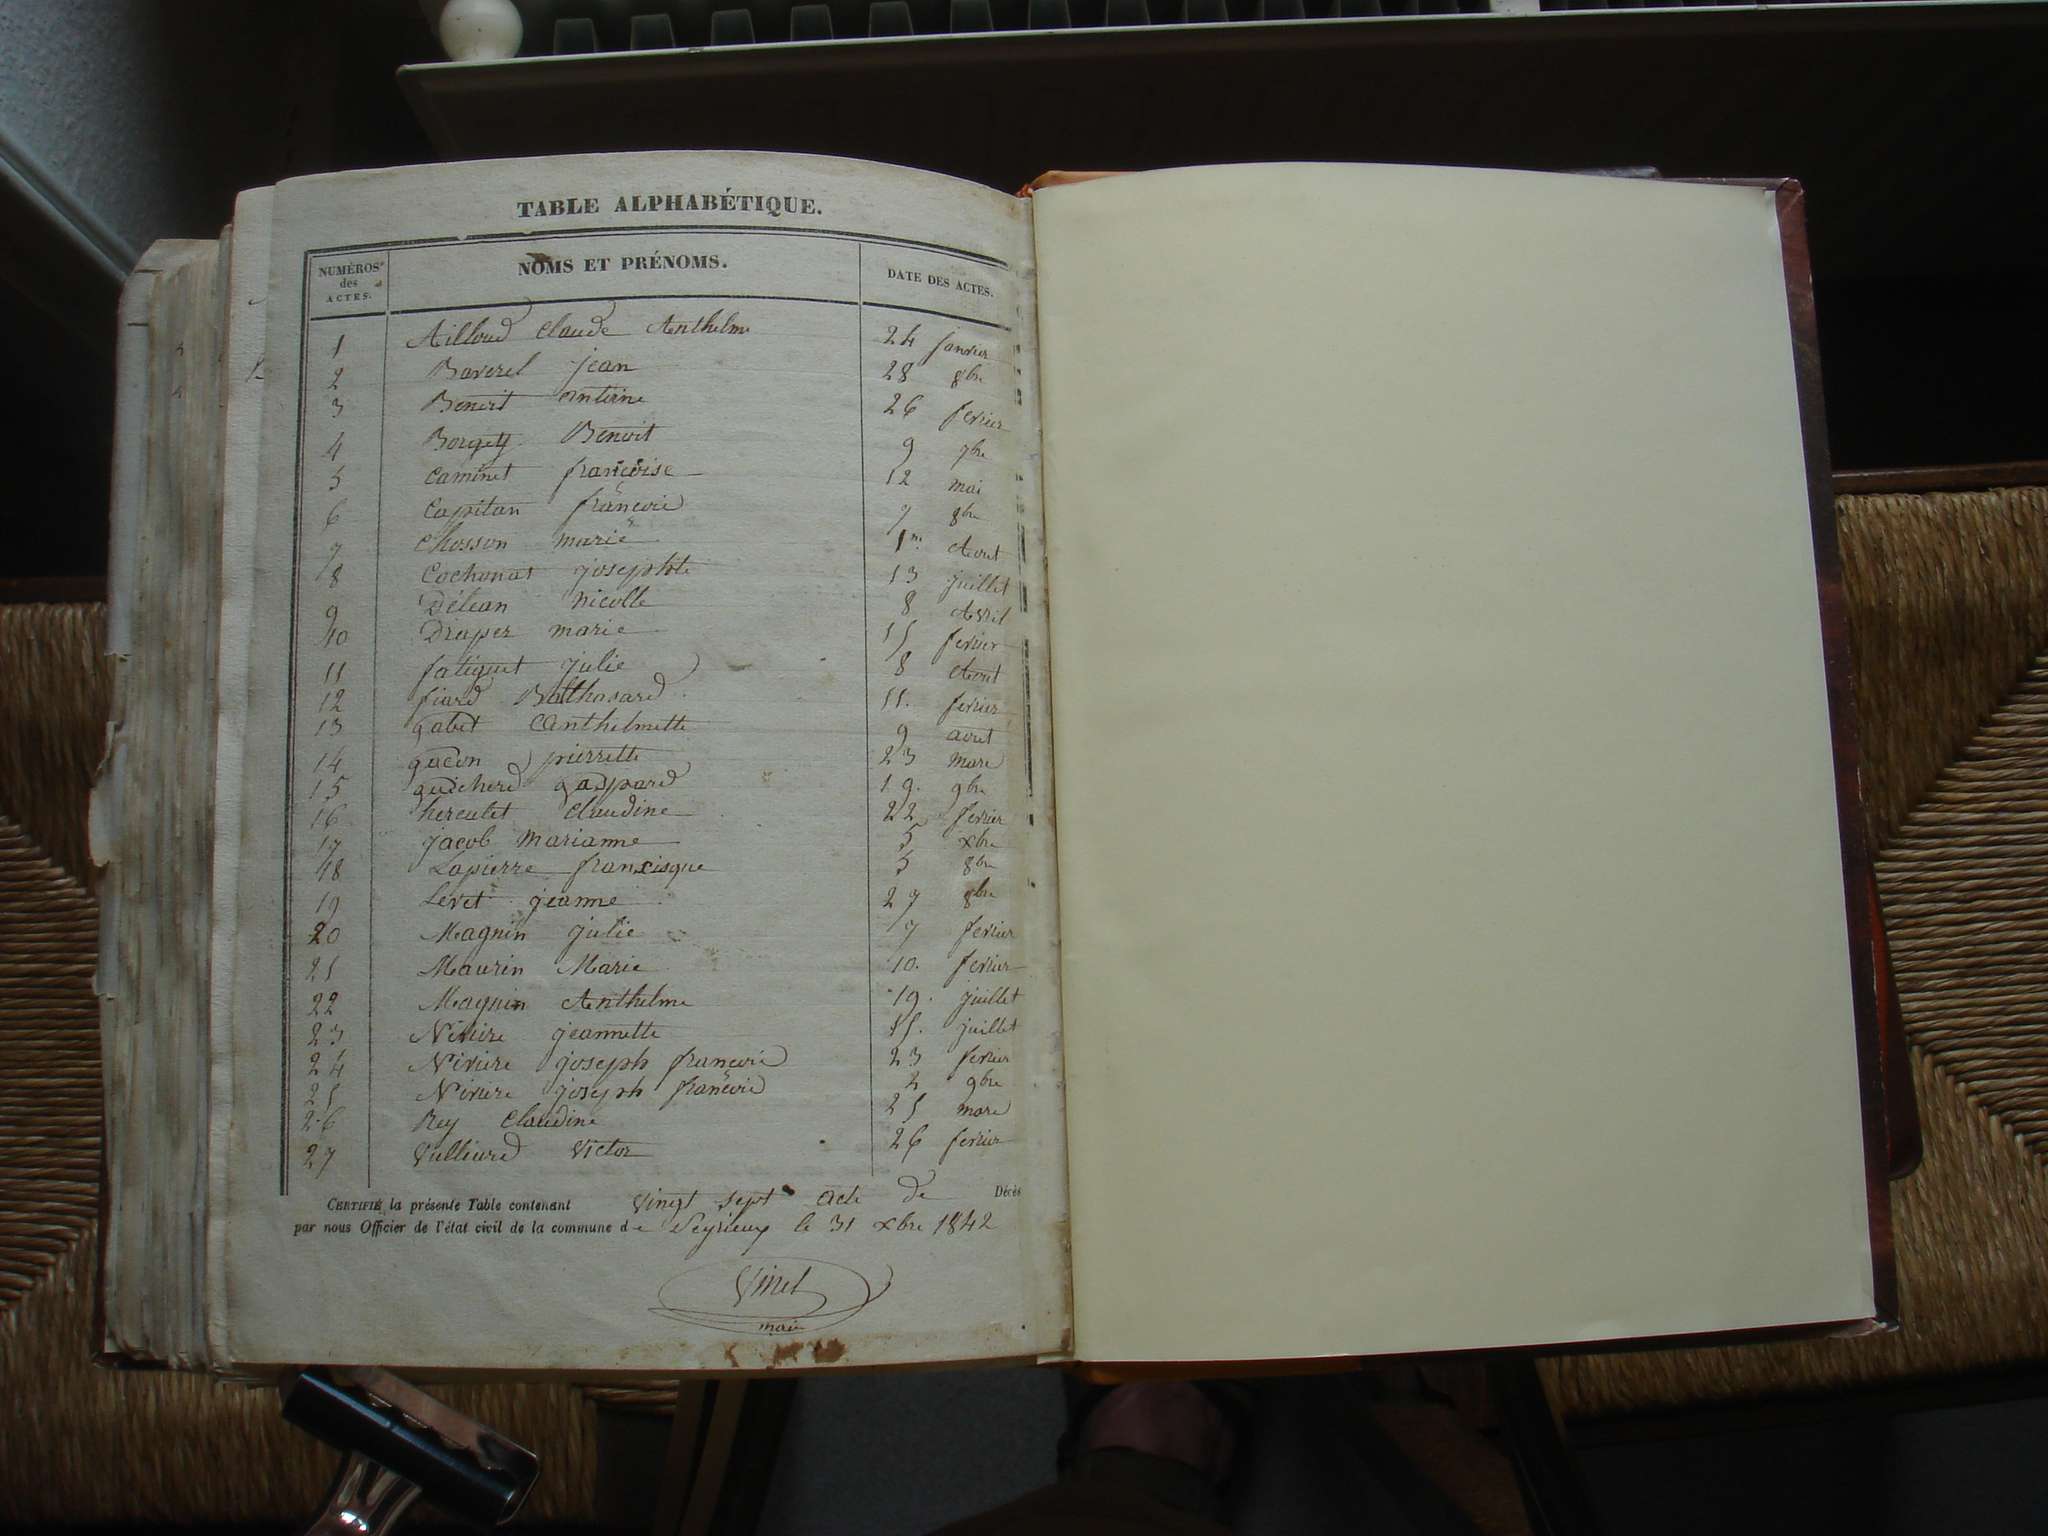 TABLE ALPHABÉTIQUE.
NUMÉROS des ACTES. NOMS ET PRÉNOMS. DATE DES ACTES.
1 Ailloud Claude Anthelme 24 janvier
2 Baverel jean 28 8bre
3 Benoit Antoine 26 fevrier
4 Borgey Benoit 9 7bre
5 Caminet françoise 12 mai
6 Capitan françois 7 8bre
7 Chosson marie 1er Aout
8 Cochonat josephte 13 juillet
9 Déléan nicolle 8 Avril
10 Draper marie 15 fevrier
11 fatiguet julie 8 Aout
12 fiard Balthasard 11. fevrier
13 gabet Anthelmette 9 aout
14 guédon pierrette 23 mars
15 guichерd gaspard 19. 9bre
16 herculet Claudine 22 fevrier
17 jacob Marianne 5 xbre
18 Lapierre francisque 5 8bre
19 Levet jeanne 27 8bre
20 Magnin julie 17 fevrier
21 Maurin Marie 10. fevrier
22 Magnin Anthelme 19. juillet
23 Niviere jeannette 15. juillet
24 Niviere joseph françois 23 fevrier
25 Niviere joseph françois 2 9bre
26 Rey Claudine 25 mars
27 Vulliard Victor 26 fevrier
CERTIFIÉ la présente Table contenant vingt sept acte de Décès
par nous Officier de l'état civil de la commune de Peyrieux le 31 xbre 1842
Vinet
maire